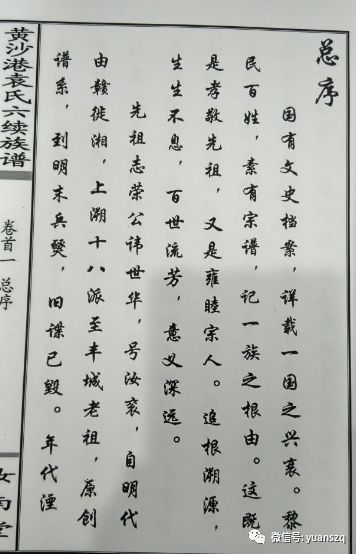 总序
国有文史档案，详载一国之兴衰。黎
民百姓，素有宗谱，记一族之根由。这既
是孝敬先祖，又是雍睦宗人。追根溯源，
生生不息，百世流芳，意义深远。
先祖志荣公讳世华，号汝衮，自明代
由赣徙湘，上溯十八派至丰城老祖，原创
谱系，到明末兵燹，旧谍已毁。年代湮
黄沙港袁氏六续族谱
卷首一 总序
汝南堂
微信号: yuanszq